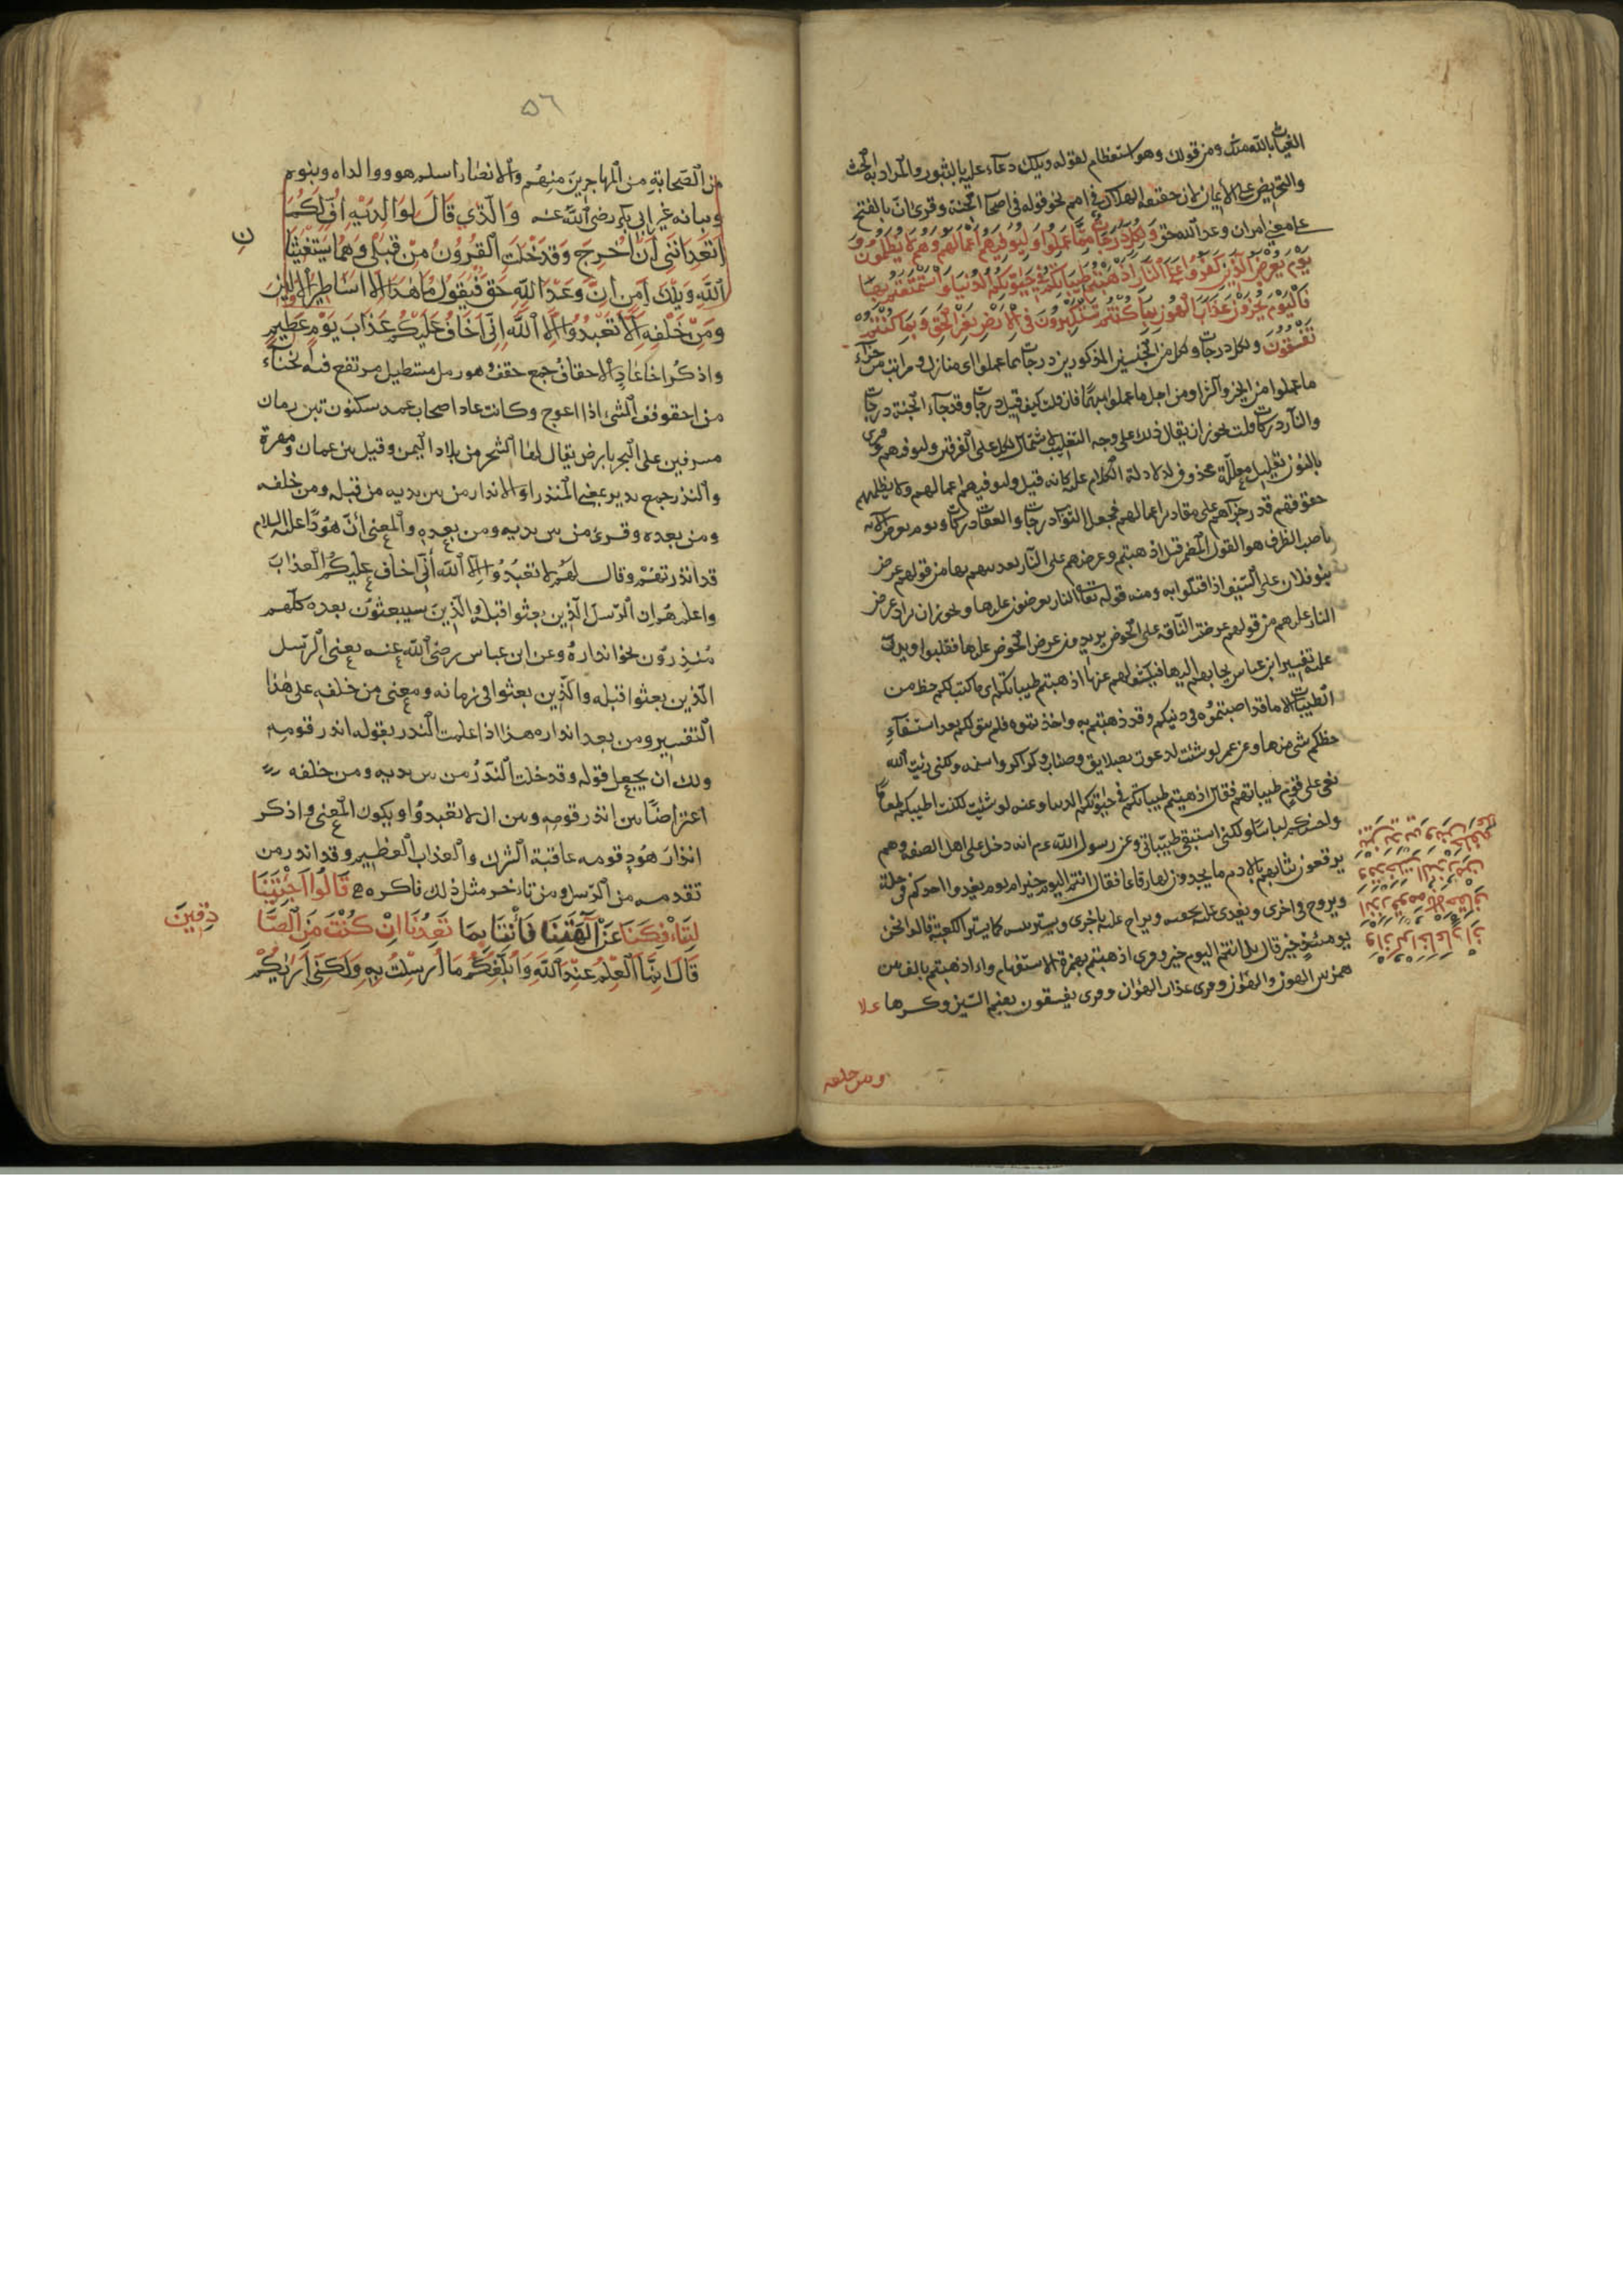 الغياث بالله منك ومن قولك وهو استعظام لقوله ويلك دعاء عليه بالثبور والمراد به الحث
والتحريض على الايمان لا حقيقة الهلاك في امم نحو قوله في اصحاب الجنة وقرئ ان بالفتح
على معنى امن بان وعد الله حق ولكل درجات مما عملوا وليوفيهم اعمالهم وهم لا يظلمون
يوم يعرض الذين كفروا على النار اذهبتم طيباتكم في حيوتكم الدنيا واستمتعتم بها
فاليوم تجزون عذاب الهون بما كنتم تستكبرون في الارض بغير الحق وبما كنتم
تفسقون ولكل درجات ولكل من الجنسين المذكورين درجات مما عملوا اي منازل ومراتب من جزاء
ما عملوا من الخير والشر او من اجل ما عملوا منهما فان قلت كيف قيل درجات وقد جاء الجنة درجات
والنار دركات قلت يجوز ان يقال ذلك على وجه التغليب لاشتمال كل على الفريقين وليوفيهم وقرئ
بالنون تعليل معلله محذوف لدلالة الكلام عليه كانه قيل وليوفيهم اعمالهم ولا يظلمهم
حقوقهم قدر جزاءهم على مقادير اعمالهم فجعل الثواب درجات والعقاب دركات ويوم يعرض
ناصب الظرف هو القول المضمر قبل اذهبتم وعرضهم على النار تعذيبهم بها من قولهم عرض
بنو فلان على السيف اذا قتلوا به ومنه قوله تعالى النار يعرضون عليها ويجوز ان يراد عرض
النار عليهم من قولهم عرضت الناقة على الحوض يريدون عرض الحوض عليها فقلبوا ويدل
عليه تفسير ابن عباس يجاء بهم اليها فيكشف لهم عنها اذهبتم طيباتكم اي ما كتب لكم حظ من
الطيبات الا ما قد اصبتموه في دنيكم وقد ذهبتم به واخذتموه فلم يبق لكم بعد استيفاء
حظكم شئ منها وعن عمر لو شئت لدعوت بصلايق وصناب وكراكر واسنمة ولكني رئيت الله
نعى على قوم طيباتهم فقال اذهبتم طيباتكم في حيوتكم الدنيا وعنه لو شئت لكنت اطيبكم طعاما
واحسنكم لباسا ولكني استبقي طيباتي وعن رسول الله عم انه دخل على اهل الصفة وهم
يرقعون ثيابهم بالادم ما يجدون لها رقاعا فقال انتم اليوم خير ام يوم يغدوا احدكم في حلة
ويروح في اخرى ويغدى عليه بجفنة ويراح عليه باخرى ويستر بيته كما يستر الكعبة قالوا نحن
يومئذ خير قال بل انتم اليوم خير وقرئ اذهبتم بهمزة الاستفهام وااذهبتم بالف بين
همزتين الهون والهوان وقرئ عذاب الهوان وقرئ يفسقون بضم السين وكسرها علا
واذكر اخا عاد اذ
انذر قومه بالاحقاف
وقد خلت النذر من
بين يديه ومن خلفه
ومن خلفه
٥٦
من الصحابة من المهاجرين منهم والانصار اسلم هو ووالداه وبنوه
وبناته غير ابي بكر رضى الله عنه والذي قال لوالديه اف لكما
اتعدانني ان اخرج وقد خلت القرون من قبلي وهما يستغيثان
الله ويلك امن ان وعد الله حق فيقول ما هذا الا اساطير الاولين
ومن خلفه الا تعبدوا الا الله اني اخاف عليكم عذاب يوم عظيم
واذكر اخا عاد الاحقاف جمع حقف وهو رمل مستطيل مرتفع فيه انحناء
من احقوقف الشئ اذا اعوج وكانت عاد اصحاب عمد سكنون بين رمال
مشرفين على البحر بارض يقال لها الشحر من بلاد اليمن وقيل بين عمان ومهرة
والنذر جمع نذير بمعنى المنذر او الانذار من بين يديه من قبله ومن خلفه
ومن بعده وقرئ من بين يديه ومن بعده والمعنى ان هودا عليه السلام
قد انذرتهم وقال لهم لا تعبدوا الا الله اني اخاف عليكم العذاب
واعلمهم ان الرسل الذين بعثوا قبله والذين سيبعثون بعده كلهم
منذرون نحو انذاره وعن ابن عباس رضى الله عنه يعني الرسل
الذين بعثوا قبله والذين بعثوا في زمانه ومعنى من خلفه على هذا
التفسير ومن بعد انذاره هذا اذا علمت النذر بقوله انذر قومه
ولك ان يجعل قوله وقد خلت النذر من بين يديه ومن خلفه
اعتراضا بين انذر قومه وبين ان لا تعبدوا ويكون المعنى واذكر
انذار هود قومه عاقبة الشرك والعذاب العظيم وقد انذر من
تقدمه من الرسل ومن تاخر مثل ذلك فاكرهم قالوا اجئتنا
لتافكنا عن آلهتنا فأتنا بما تعدنا ان كنت من الصا
دقين
قال انما العلم عند الله وابلغكم ما ارسلت به ولكني اريكم